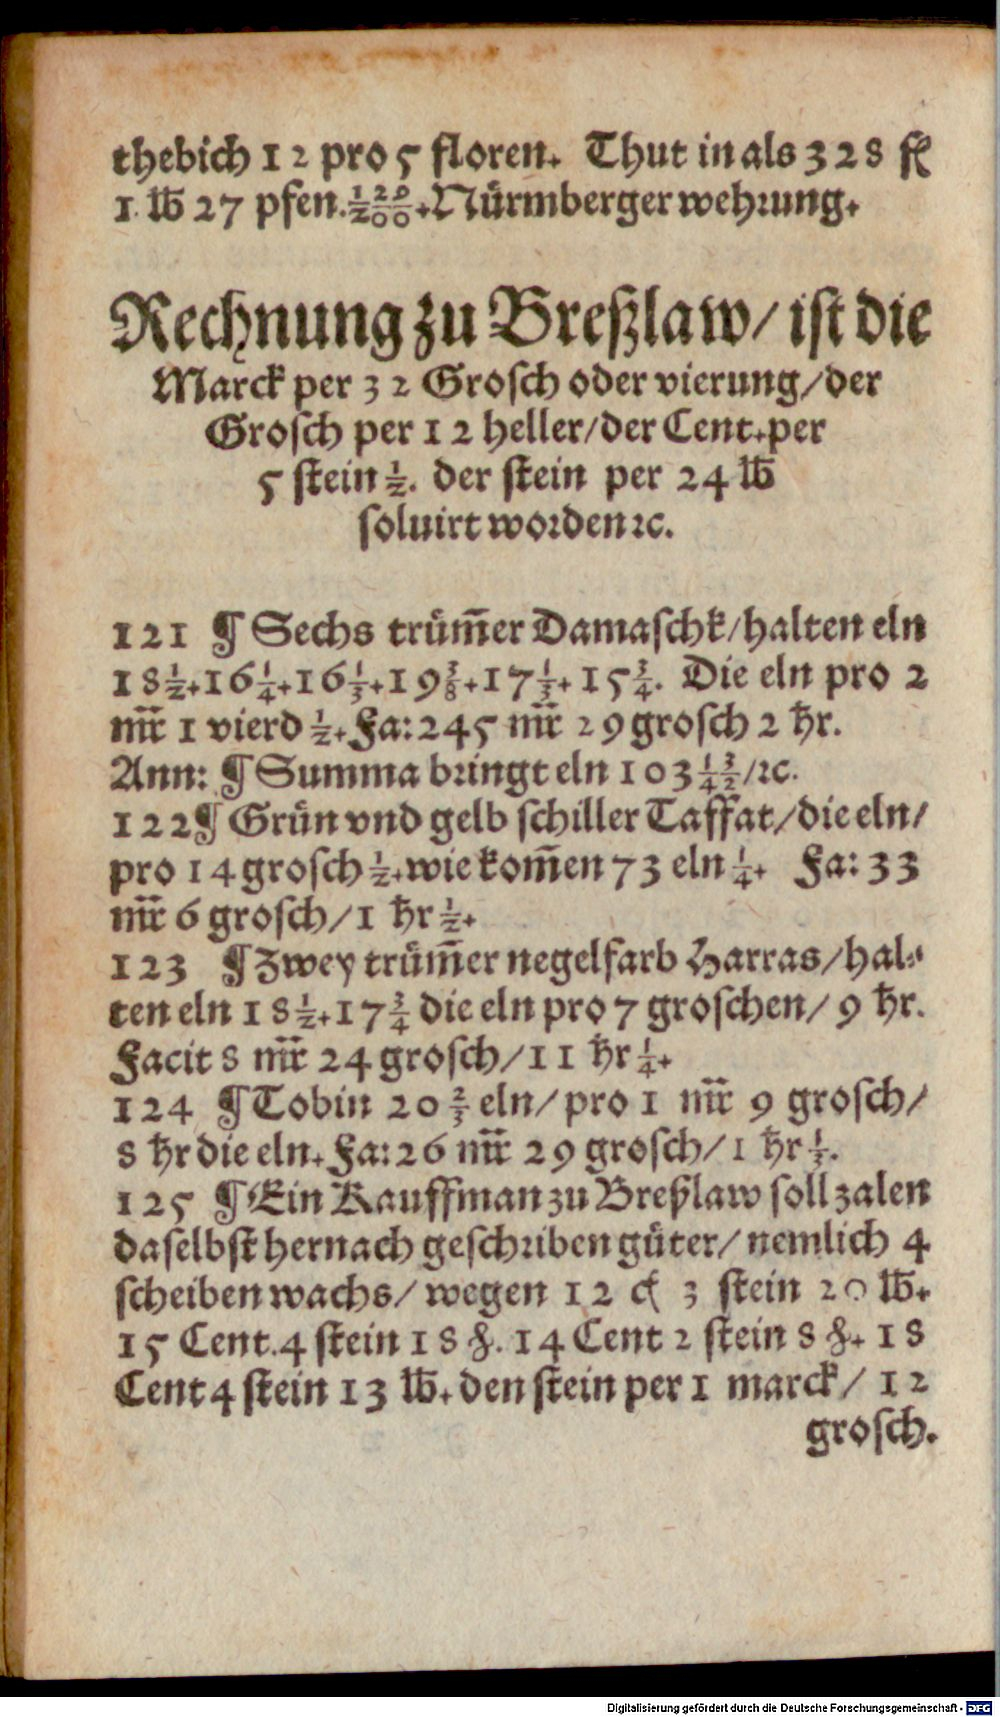 thebich 12 pro 5 floren. Thut in als 328 fl
1. ℔ 27 pfen. Nürmberger wehrung.
Rechnung zu Breßlaw/ ist die
Marck per 32 Grosch oder vierung/ der
Grosch per 12 heller/ der Cent. per
5 stein ½. der stein per 24 ℔
soluirt worden ꝛc.
121 ¶ Sechs trüm̄er Damaschk/ halten eln
18½. 16¼. 16⅓. 19⅜. 17⅓. 15¾. Die eln pro 2
mr̄ 1 vierd ½. Fa: 245 mr̄ 29 grosch 2 hr.
Ann: ¶ Summa bringt eln 103 /ꝛc.
122 ¶ Grün vnd gelb schiller Taffat/ die eln/
pro 14 grosch ½. wie kom̄en 73 eln ¼. Fa: 33
mr̄ 6 grosch/ 1 hr ½.
123 ¶ Zwey trüm̄er negelfarb Harras/ hal-
ten eln 18½. 17¾ die eln pro 7 groschen/ 9 hr.
Facit 8 mr̄ 24 grosch/ 11 hr ¼.
124 ¶ Tobin 20⅔ eln/ pro 1 mr̄ 9 grosch/
8 hr die eln. Fa: 26 mr̄ 29 grosch/ 1 hr ⅓.
125 ¶ Ein Kauffman zu Breßlaw soll zalen
daselbst hernach geschriben güter/ nemlich 4
scheiben wachs/ wegen 12 3 stein 20 ℔.
15 Cent. 4 stein 18 ℔. 14 Cent 2 stein 8 ℔. 18
Cent 4 stein 13 ℔. den stein per 1 marck/ 12
grosch.
Digitalisierung gefördert durch die Deutsche Forschungsgemeinschaft - DFG